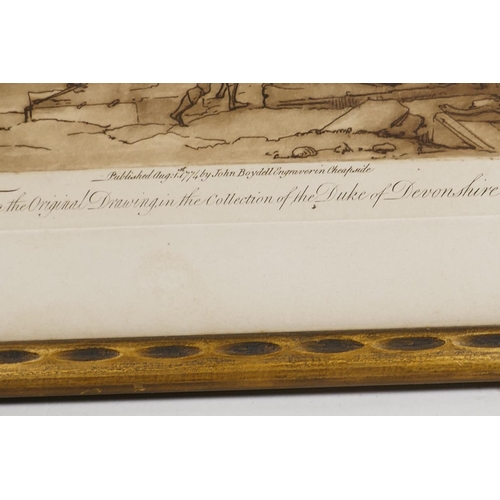 Published Aug: 1st 1774 by John Boydell Engraver in Cheapside
the Original Drawing in the Collection of the Duke of Devonshire